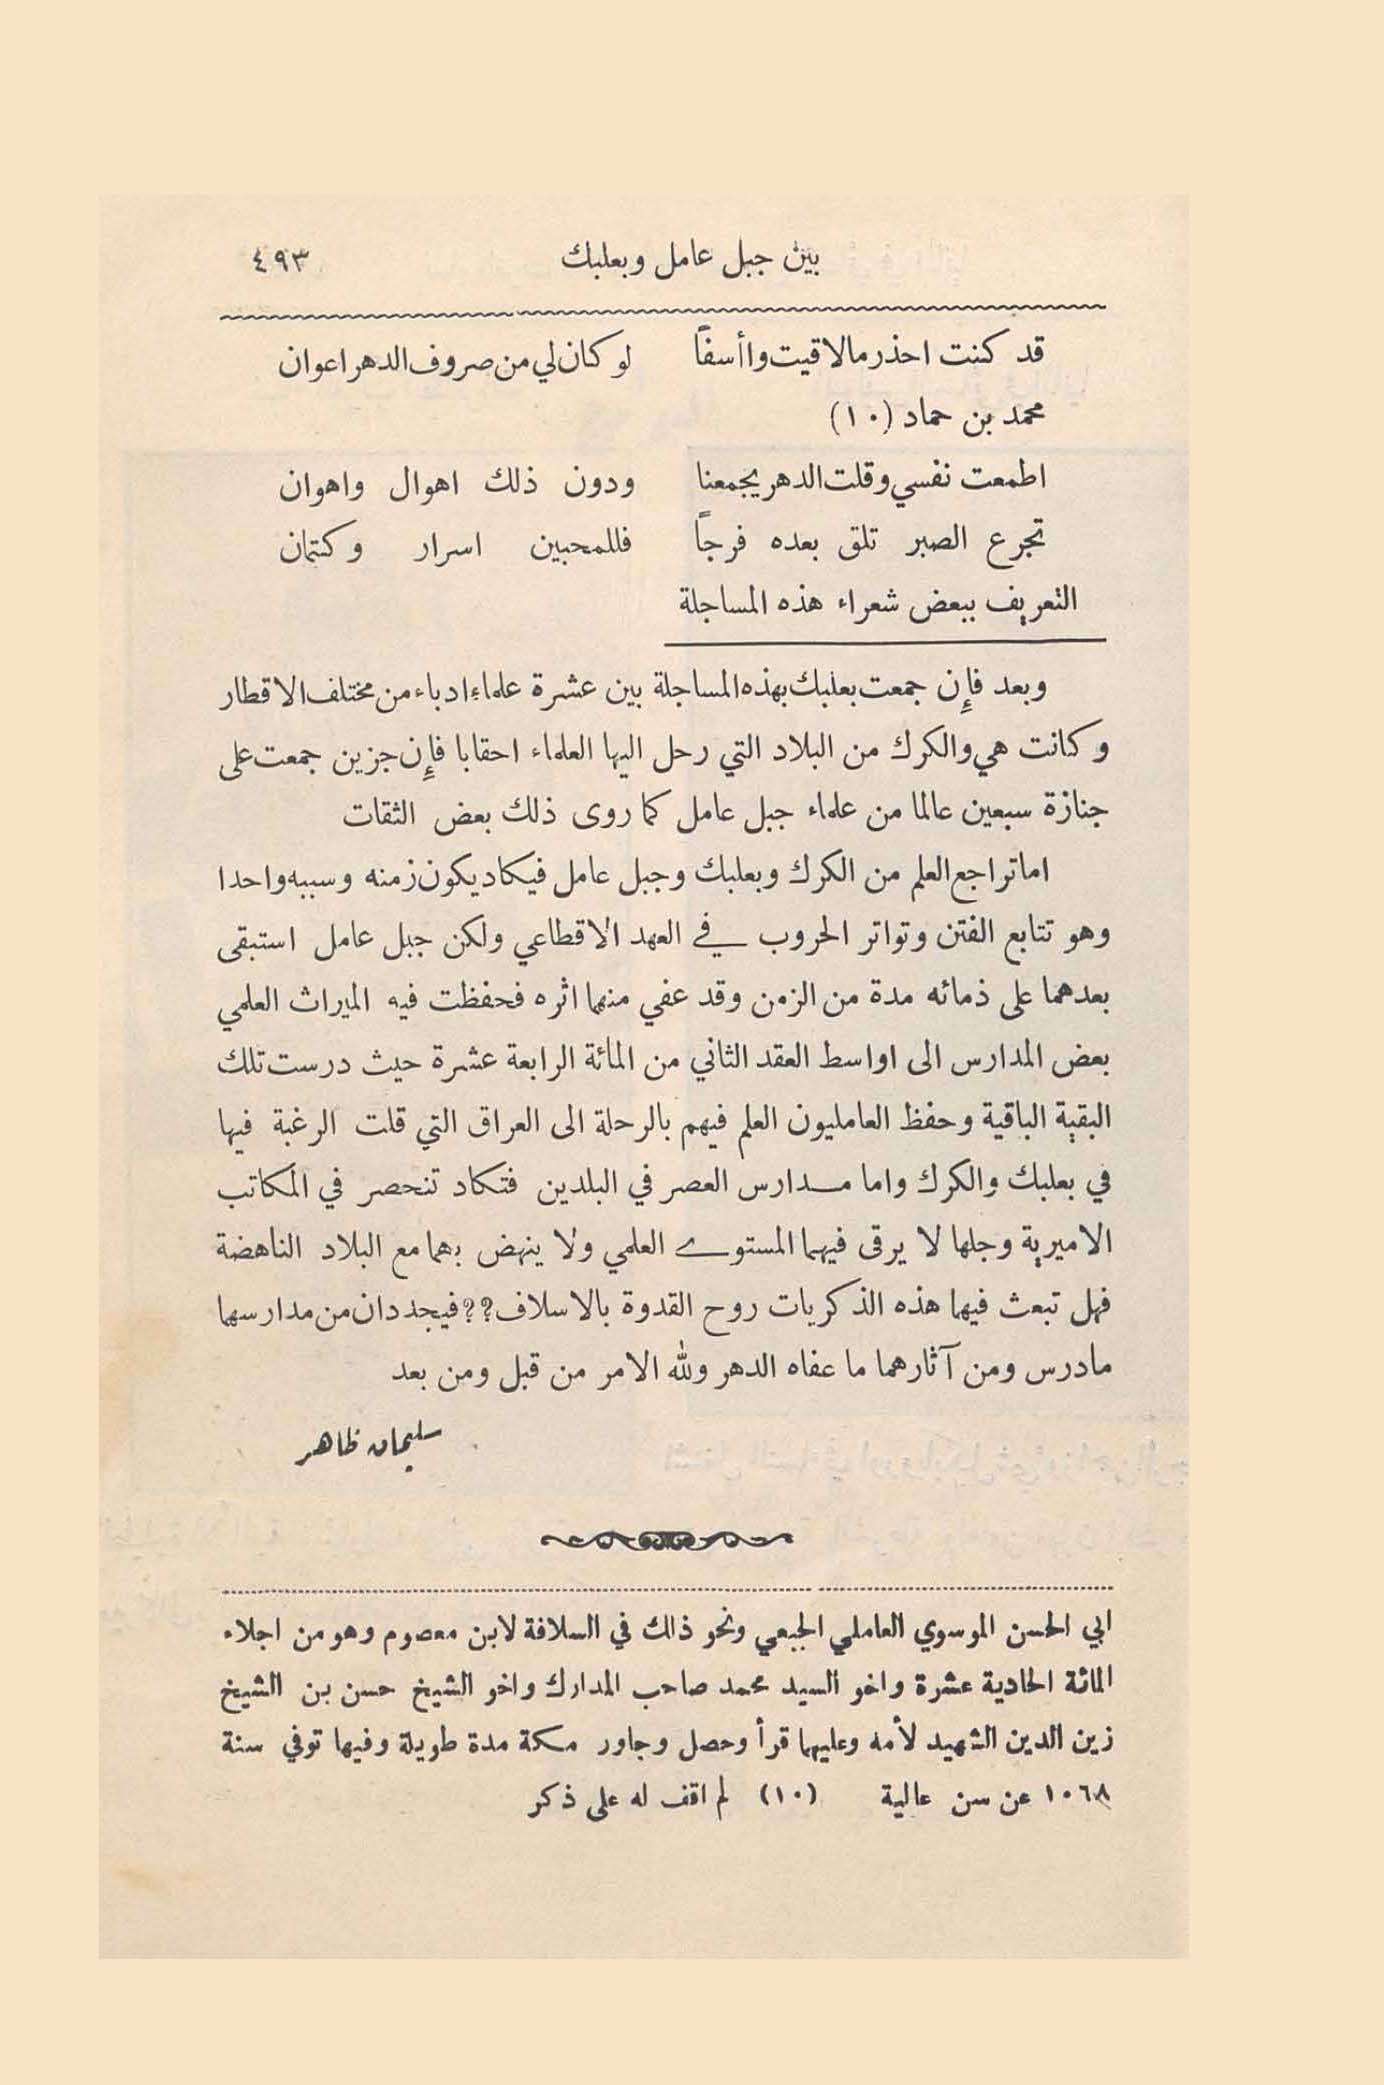 بين جبل عامل وبعلبك ٤٩٣
قد كنت احذر مالاقيت واأسفاً لو كان لي من صروف الدهر اعوان
محمد بن حماد (١٠)
اطمعت نفسي وقلت الدهر يجمعنا ودون ذلك اهوال واهوان
تجرع الصبر تلق بعده فرجاً فللمحبين اسرار وكتمان
التعريف ببعض شعراء هذه المساجلة
وبعد فإن جمعت بعلبك بهذه المساجلة بين عشرة علماء ادباء من مختلف الاقطار
وكانت هي والكرك من البلاد التي رحل اليها العلماء احقابا فإن جزين جمعت على
جنازة سبعين عالما من علماء جبل عامل كما روى ذلك بعض الثقات
اما تراجع العلم من الكرك وبعلبك وجبل عامل فيكاد يكون زمنه وسببه واحدا
وهو تتابع الفتن وتواتر الحروب في العهد الاقطاعي ولكن جبل عامل استبقى
بعدهما على ذمائه مدة من الزمن وقد عفي منهما اثره فحفظت فيه الميراث العلمي
بعض المدارس الى اواسط العقد الثاني من المائة الرابعة عشرة حيث درست تلك
البقية الباقية وحفظ العامليون العلم فيهم بالرحلة الى العراق التي قلت الرغبة فيها
في بعلبك والكرك واما مدارس العصر في البلدين فتكاد تنحصر في المكاتب
الاميرية وجلها لا يرقى فيهما المستوى العلمي ولا ينهض بهما مع البلاد الناهضة
فهل تبعث فيهما هذه الذكريات روح القدوة بالاسلاف؟؟ فيجددان من مدارسهما
مادرس ومن آثارهما ما عفاه الدهر ولله الامر من قبل ومن بعد
سليمان ظاهر
ابي الحسن الموسوي العاملي الجبعي ونحو ذلك في السلافة لابن معصوم وهو من اجلاء
المائة الحادية عشرة واخو السيد محمد صاحب المدارك واخو الشيخ حسن بن الشيخ
زين الدين الشهيد لأمه وعليهما قرأ وحصل وجاور مكة مدة طويلة وفيها توفي سنة
١٠٦٨ عن سن عالية (١٠) لم اقف له على ذكر